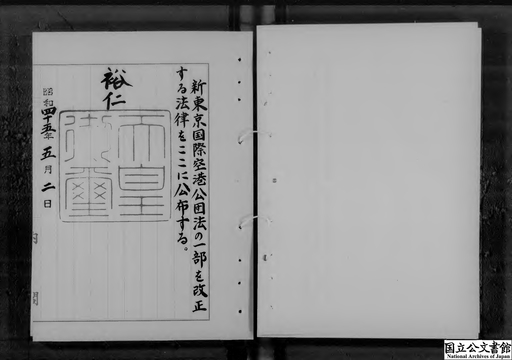 新東京国際空港公団法の一部を改正
する法律をここに公布する。
裕仁
天皇
御璽
昭和四十五年五月二日
国立公文書館
National Archives of Japan